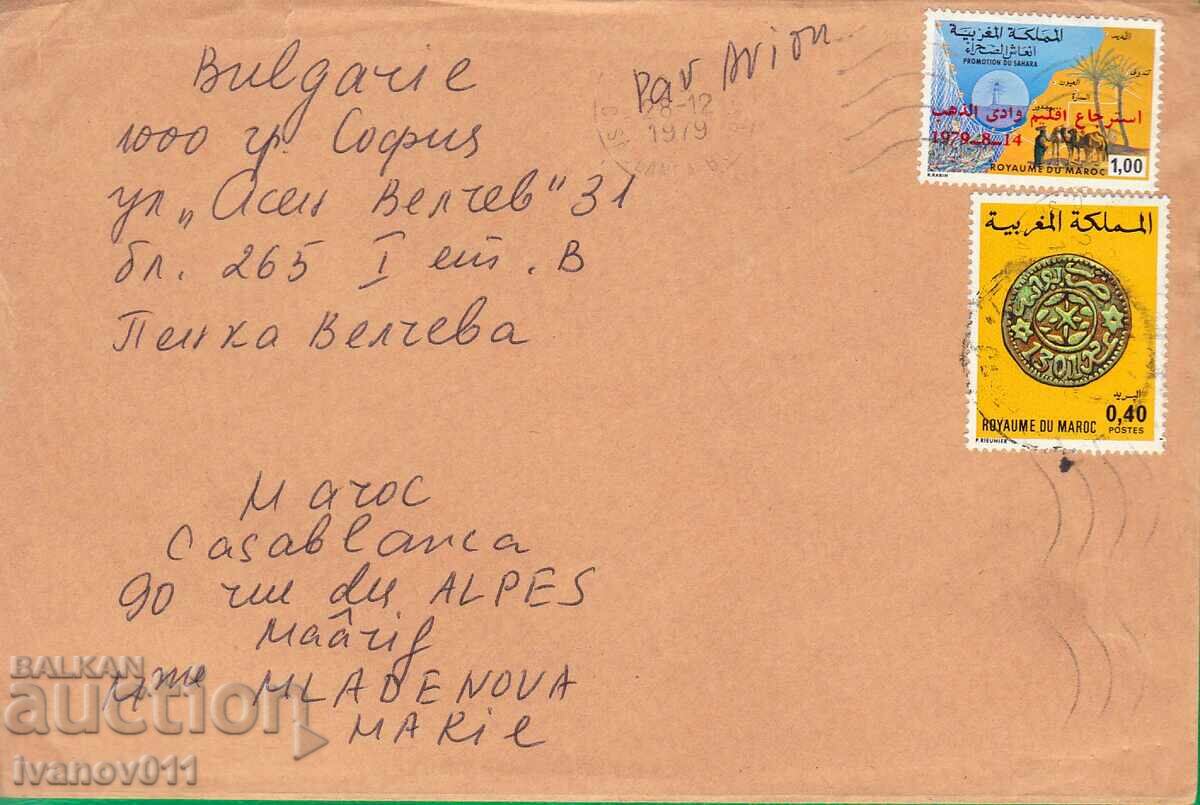 Bulgarie
1000 гр. София
ул. „Асен Велчев" 31
бл. 265 I ет. В
Пенка Велчева
Par Avion
8-12
1979
المملكة المغربية
انعاش الصحراء
PROMOTION DU SAHARA
العيون
السمارة
استرجاع اقليم وادى الذهب
1979-8-14
ROYAUME DU MAROC 1,00
المملكة المغربية
1301
البريد
0,40
ROYAUME DU MAROC POSTES
Maroc
Casablanca
90 rue du ALPES
Maârif
Mme MLADENOVA
MARIE
BALKAN
auction
ivanov011